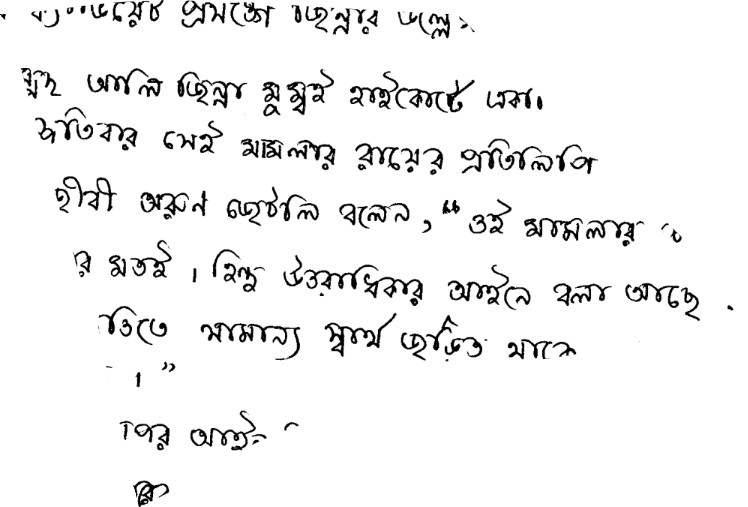 প্রসঙ্গে জিন্নার উল্লে
আলি জিন্না মুম্বই হাইকোর্টে একা
প্রতিবার সেই মামলার রায়ের প্রতিলিপি
জীবী অরুণ জেটলি বলেন, “ওই মামলার
র মতই । হিন্দু উত্তরাধিকার আইনে বলা আছে
ত্তিতে সামান্য স্বার্থ জড়িত থাকে
। ”
পর আই